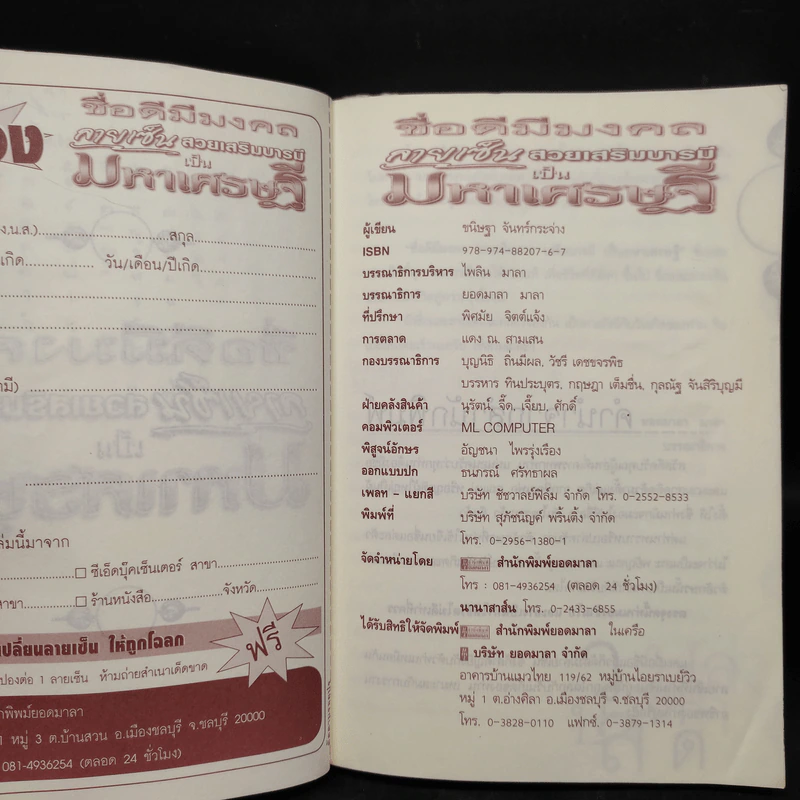 ชื่อดีมีมงคล
ลายเซ็น สวยเสริมบารมี
เป็น
มหาเศรษฐี
ง.น.ส.)..............................สกุล..............................
เกิด.................. วัน/เดือน/ปีเกิด..............................
ล่มนี้มาจาก
☐ ซีเอ็ดบุ๊คเซ็นเตอร์ สาขา....................
สาขา.................. ☐ ร้านหนังสือ....................จังหวัด....................
เปลี่ยนลายเซ็น ให้ถูกโฉลก
ฟรี
ปองต่อ 1 ลายเซ็น ห้ามถ่ายสำเนาเด็ดขาด
กพิมพ์ยอดมาลา
1 หมู่ 3 ต.บ้านสวน อ.เมืองชลบุรี จ.ชลบุรี 20000
081-4936254 (ตลอด 24 ชั่วโมง)
ชื่อดีมีมงคล
ลายเซ็น สวยเสริมบารมี
เป็น
มหาเศรษฐี
ผู้เขียน ขนิษฐา จันทร์กระจ่าง
ISBN 978-974-88207-6-7
บรรณาธิการบริหาร ไพลิน มาลา
บรรณาธิการ ยอดมาลา มาลา
ที่ปรึกษา พิศมัย จิตต์แจ้ง
การตลาด แดง ณ. สามเสน
กองบรรณาธิการ บุญนิธิ ถิ่นมีผล, วัชรี เดชขจรพิธ
บรรหาร ทินประบุตร, กฤษฎา เต็มชื่น, กุลณัฐ จันสิริบุญมี
ฝ่ายคลังสินค้า นุรัตน์, จี๊ด, เจี๊ยบ, ศักดิ์
คอมพิวเตอร์ ML COMPUTER
พิสูจน์อักษร อัญชนา ไพรรุ่งเรือง
ออกแบบปก ธนภรณ์ ศรัทธาผล
เพลท - แยกสี บริษัท ชัชวาลย์ฟิล์ม จำกัด โทร. 0-2552-8533
พิมพ์ที่ บริษัท สุภัชนิญค์ พริ้นติ้ง จำกัด
โทร. 0-2956-1380-1
จัดจำหน่ายโดย สำนักพิมพ์ยอดมาลา
โทร : 081-4936254 (ตลอด 24 ชั่วโมง)
นานาสาส์น โทร. 0-2433-6855
ได้รับสิทธิให้จัดพิมพ์ สำนักพิมพ์ยอดมาลา ในเครือ
บริษัท ยอดมาลา จำกัด
อาคารบ้านแมวไทย 119/62 หมู่บ้านไอยราเบย์วิว
หมู่ 1 ต.อ่างศิลา อ.เมืองชลบุรี จ.ชลบุรี 20000
โทร. 0-3828-0110 แฟกซ์. 0-3879-1314